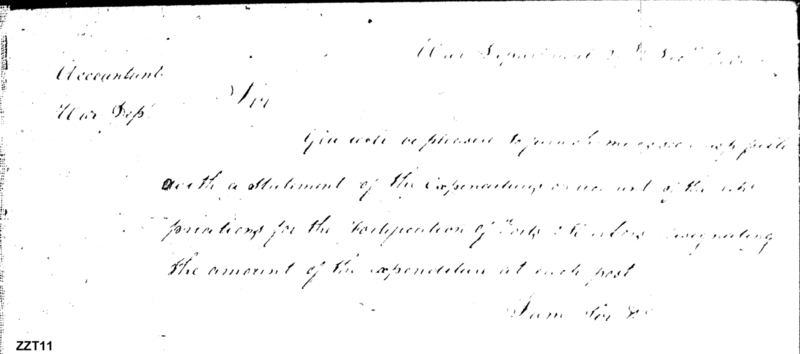 War Department
Accountant
War Dept
Sir
You will be pleased to furnish me as soon as possible
with a Statement of the Expenditures on account of the
priations for the Fortification of Ports & Harbors designating
the amount of the expenditure at each post
I am Sir &c
ZZT11